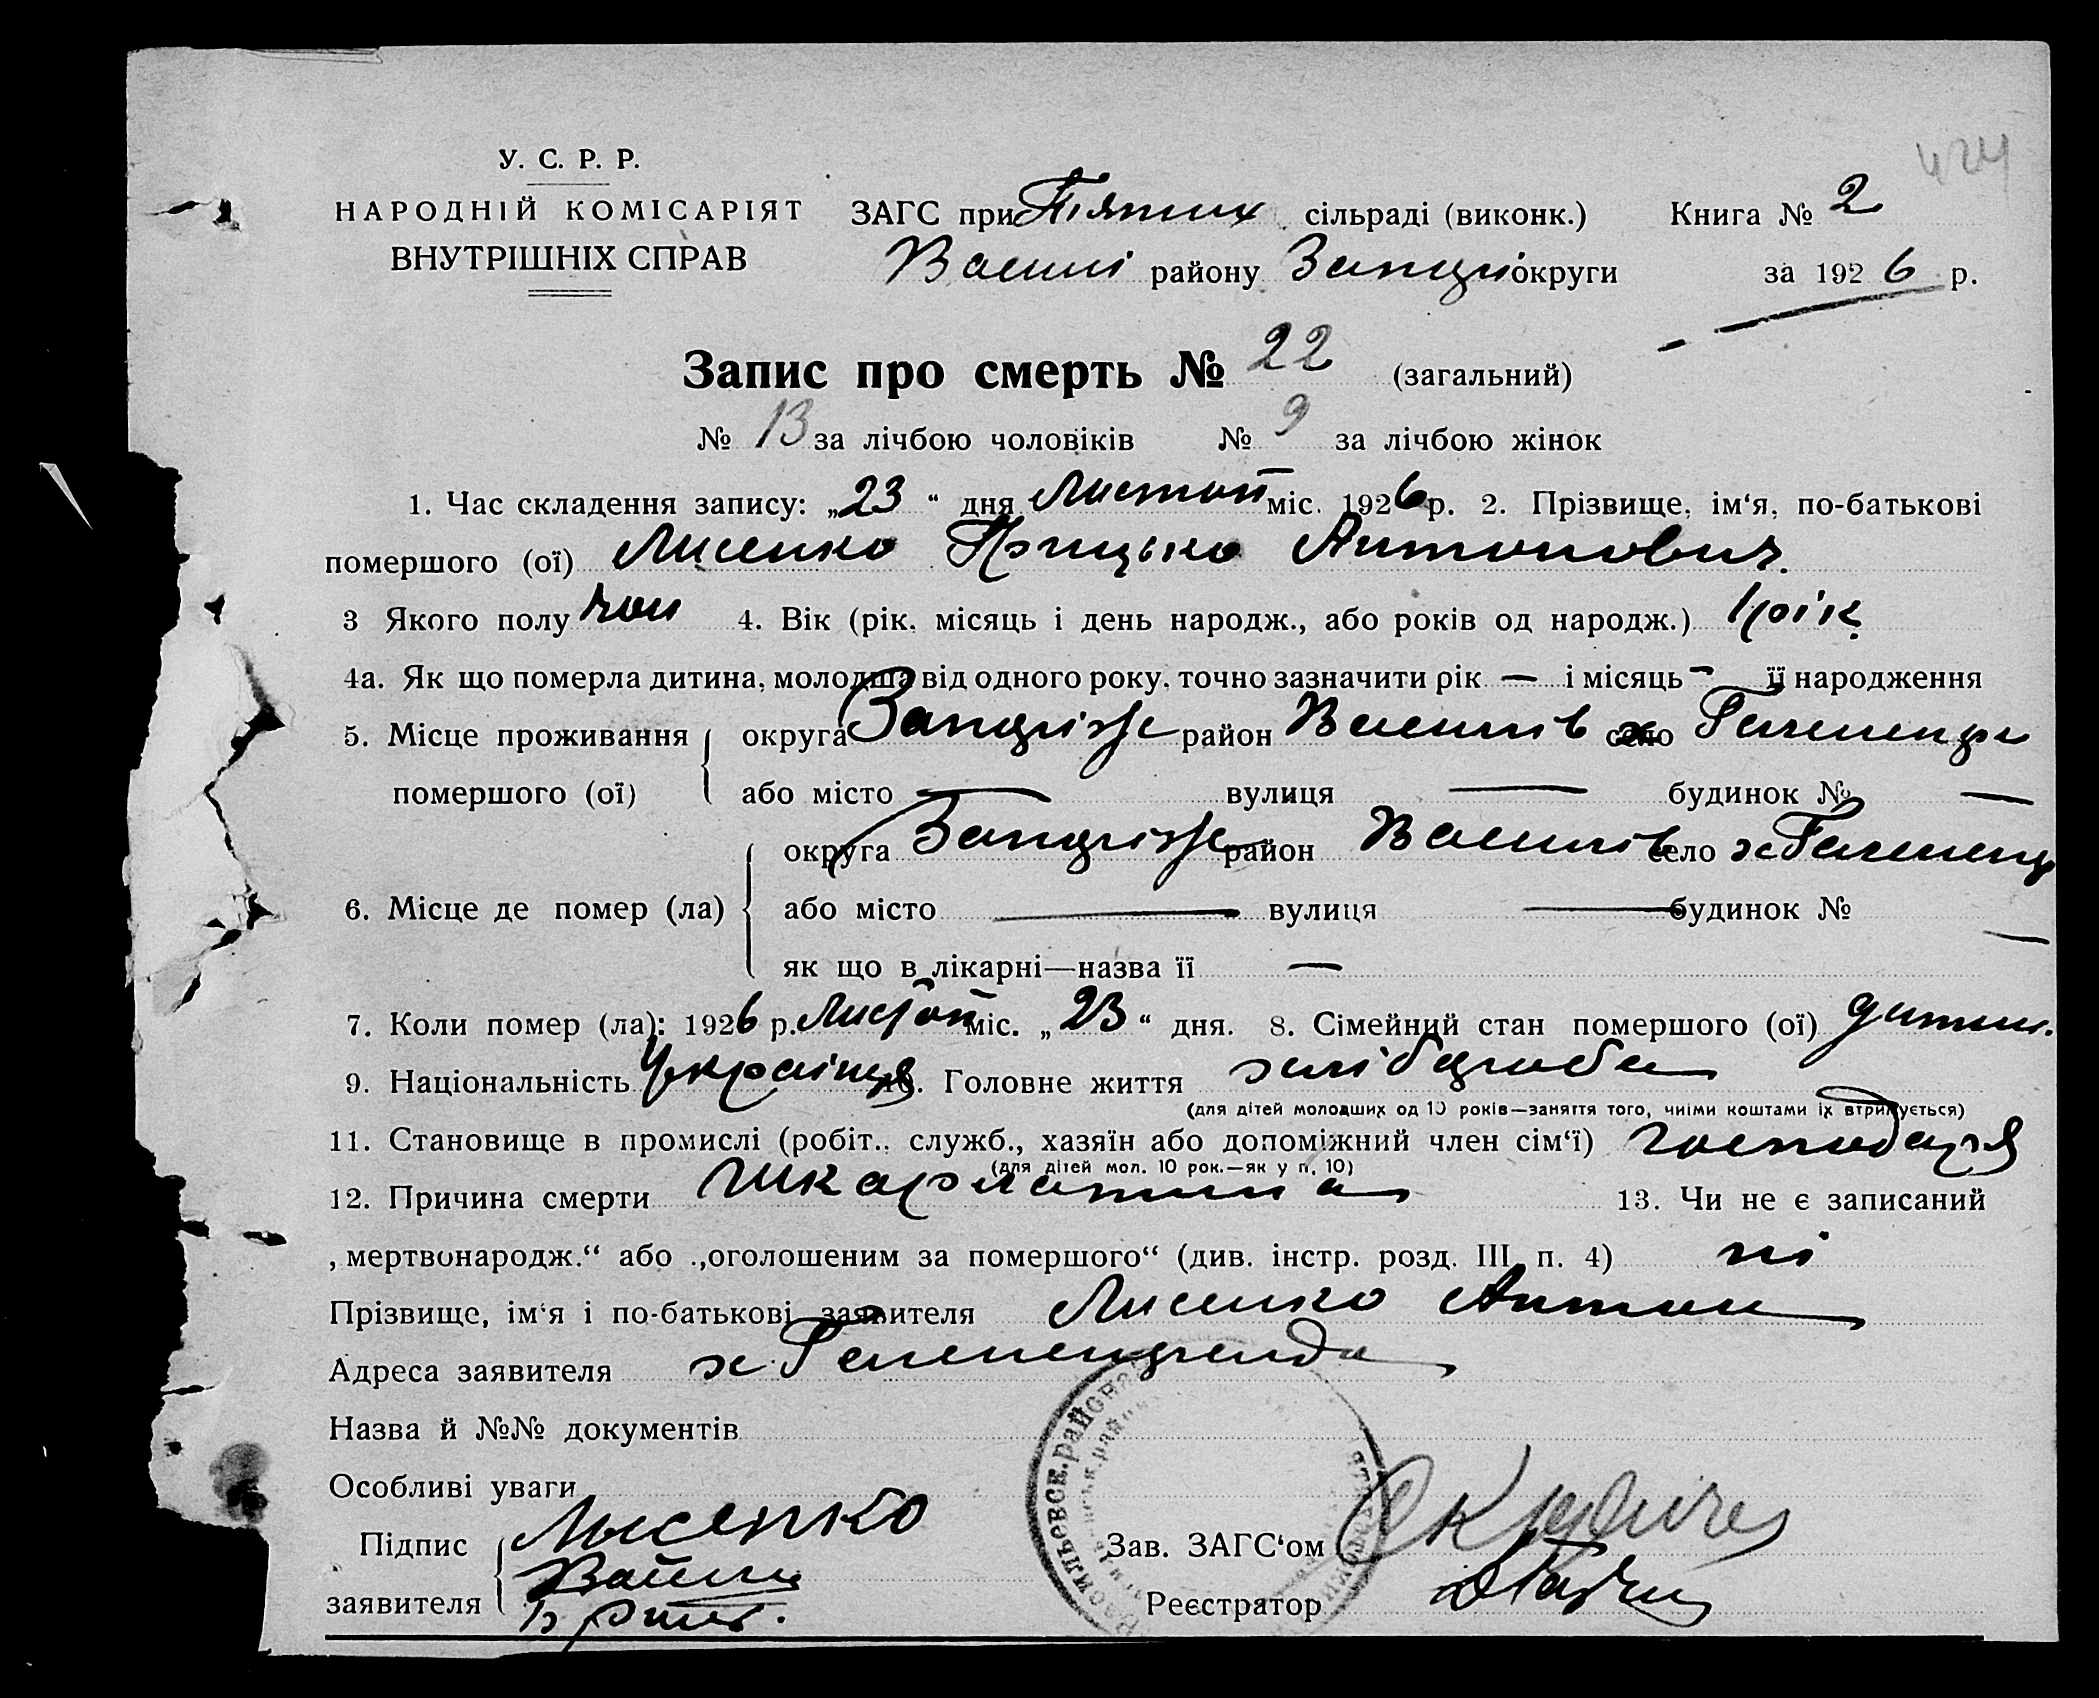 424
У. С. Р. Р.
НАРОДНІЙ КОМІСАРІЯТ ЗАГС при сільраді (виконк.) Книга № 2
ВНУТРІШНІХ СПРАВ Васил району округи за 1926 р.
Запис про смерть № 22 (загальний)
№ 13 за лічбою чоловіків № 9 за лічбою жінок
1. Час складення запису: „23“ дня Листоп міс. 1926 р. 2. Прізвище, ім‘я, по-батькові
помершого (ої) Лисенко Грицько Антонович.
3 Якого полу чол 4. Вік (рік, місяць і день народж., або років од народж.) 1 рік
4а. Як що померла дитина, молодша від одного року, точно зазначити рік — і місяць — її народження
5. Місце проживання округа Запоріж район Василів село
помершого (ої) або місто — вулиця — будинок № —
округа Запоріж район Василів село х
6. Місце де помер (ла) або місто — вулиця — будинок № —
як що в лікарні—назва її —
7. Коли помер (ла): 1926 р. Листоп міс. „23“ дня. 8. Сімейний стан помершого (ої) дитин.
9. Національність Українця 10. Головне життя хлібороба
(для дітей молодших од 10 років—заняття того, чиїми коштами їх втримується)
11. Становище в промислі (робіт., служб., хазяїн або допоміжний член сім‘ї) господаря
(для дітей мол. 10 рок.—як у п. 10)
12. Причина смерти шкарлатина 13. Чи не є записаний
„мертвонародж.“ або „оголошеним за помершого“ (див. інстр. розд. III п. 4) ні
Прізвище, ім‘я і по-батькові заявителя Лисенко Антон
Адреса заявителя х.
Назва й №№ документів
Особливі уваги
Підпис Лысенко
заявителя
Зав. ЗАГС‘ом
Реєстратор